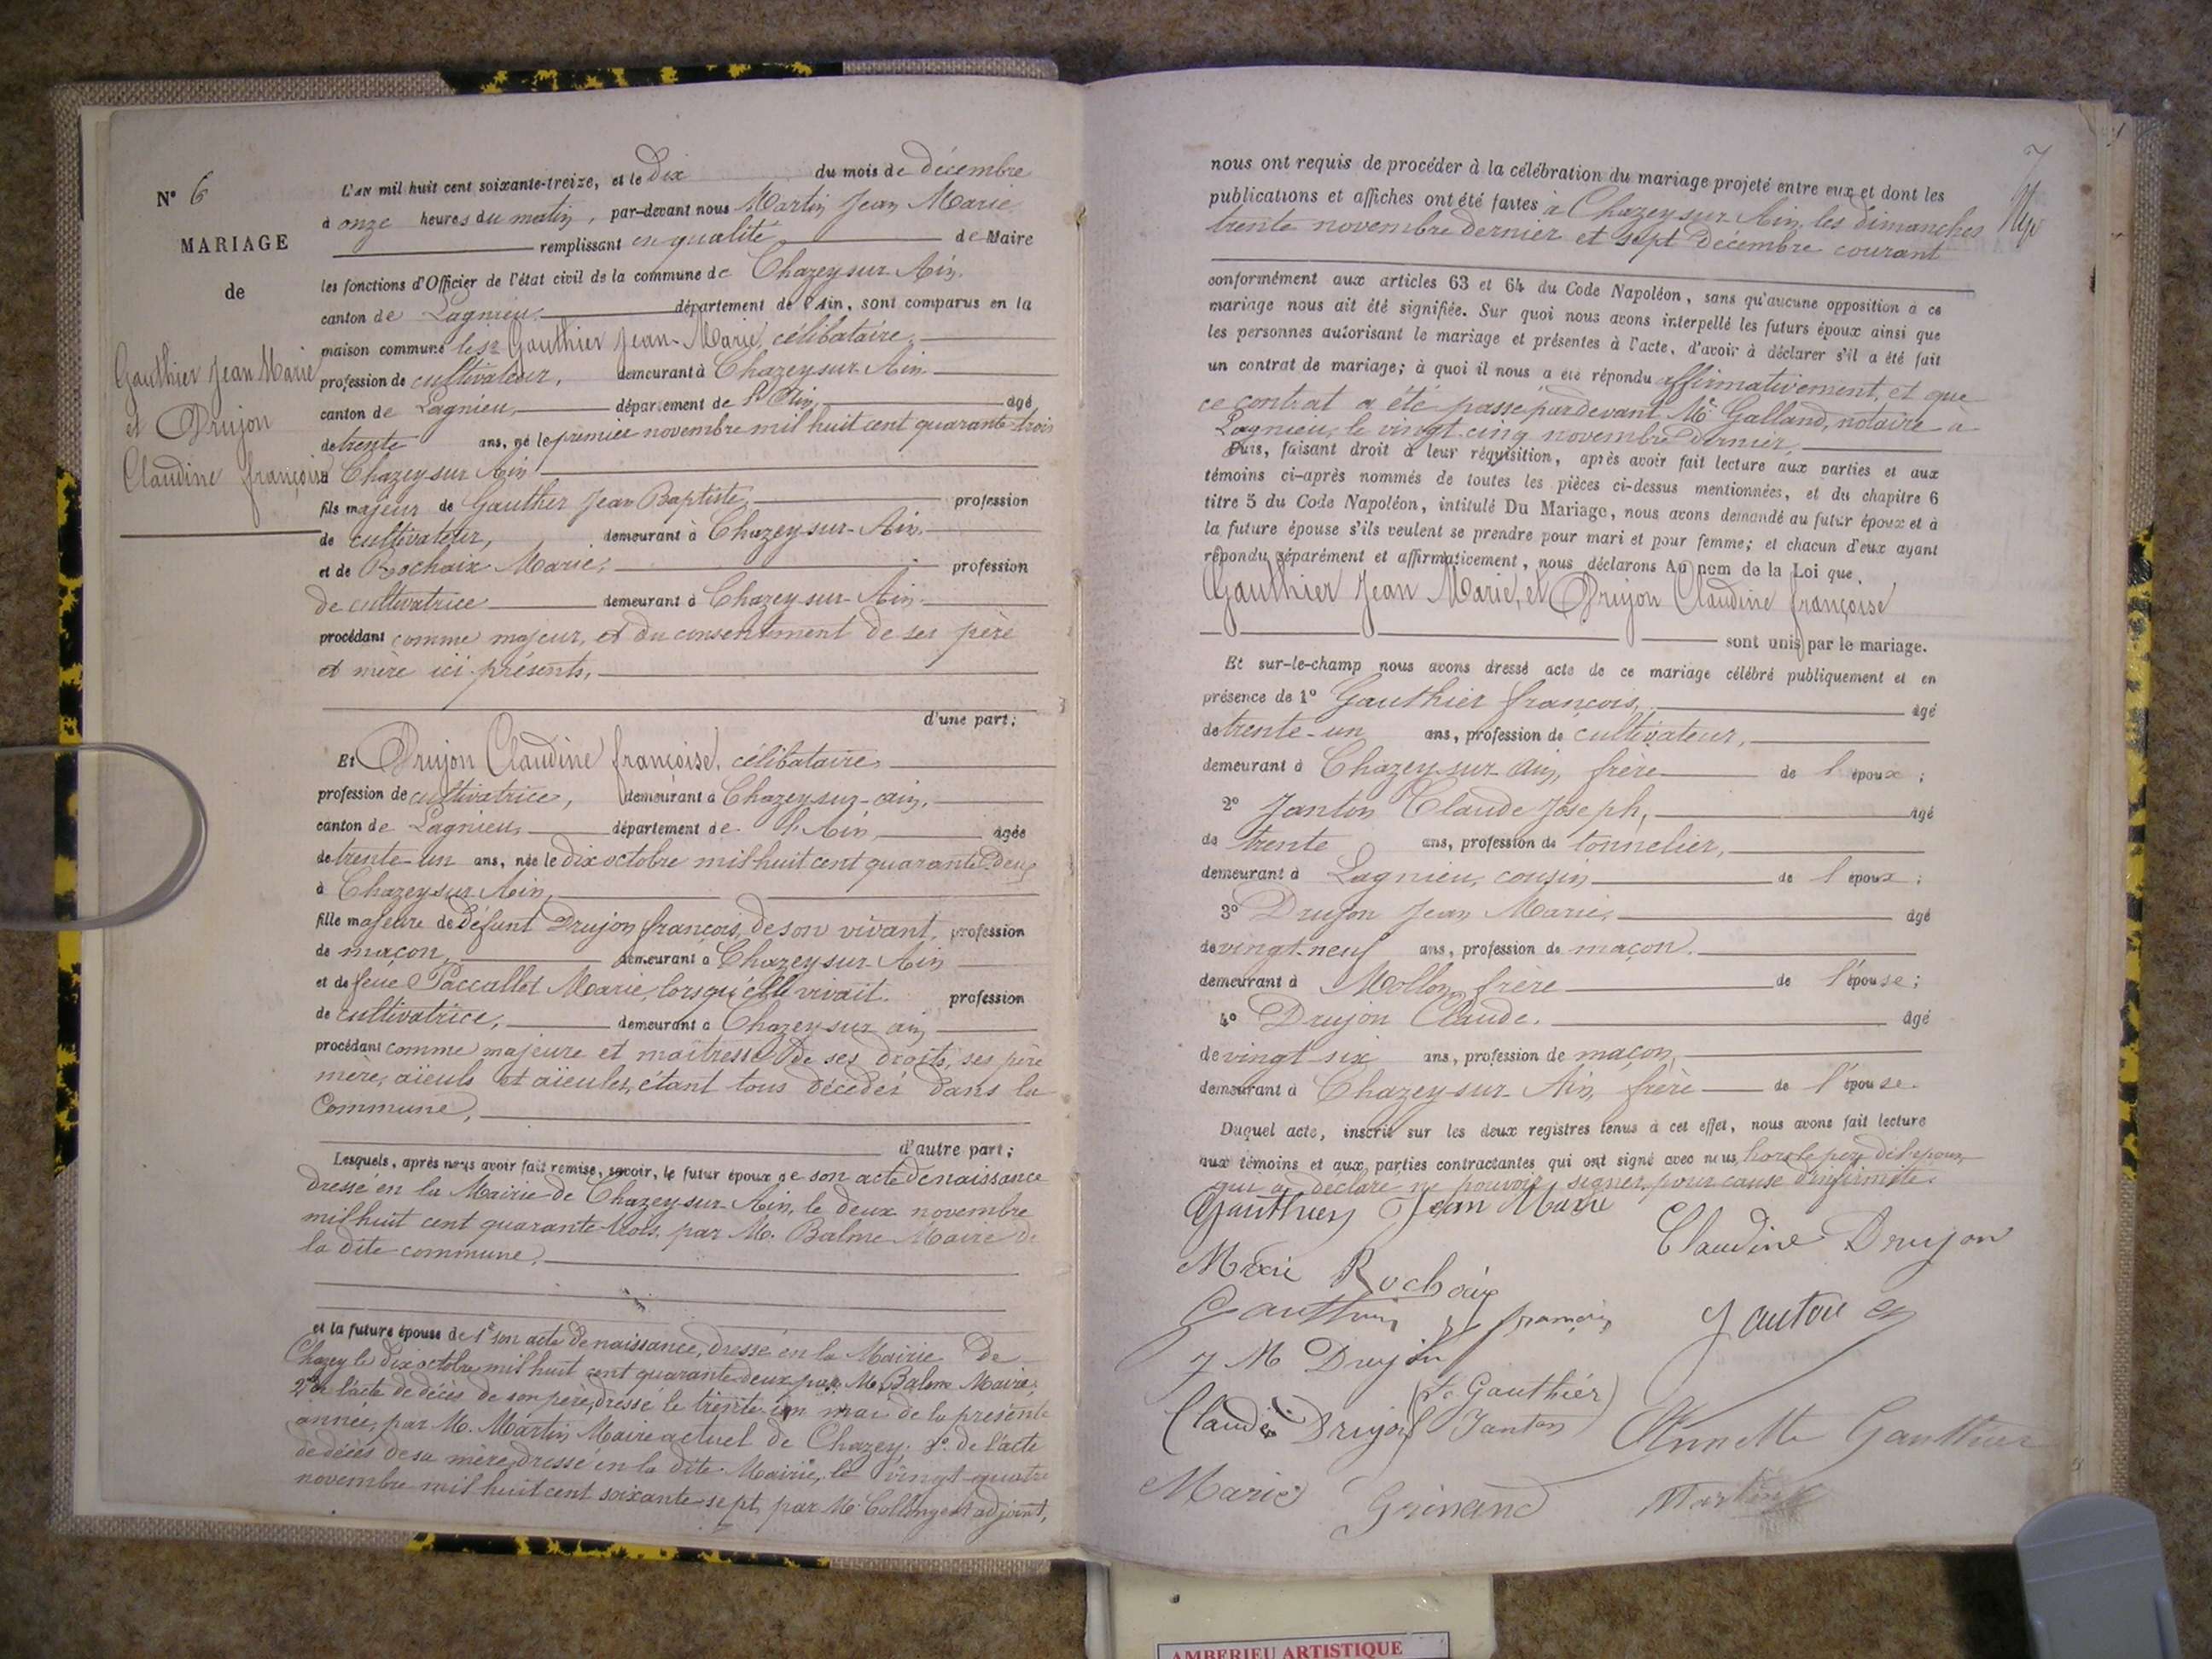 N° 6
MARIAGE
de
Gauthier Jean Marie
et Drujon
Claudine françoise
L'an mil huit cent soixante-treize, et le dix du mois de décembre
à onze heures du matin, par-devant nous Martin Jean Marie
remplissant en qualité de Maire
les fonctions d'Officier de l'état civil de la commune de Chazey-sur-Ain.
canton de Lagnieu département de l'Ain, sont comparus en la
maison commune le sr Gauthier Jean-Marie, célibataire,
profession de cultivateur, demeurant à Chazey-sur-Ain
canton de Lagnieu, département de l'Ain, âgé
de trente ans, né le premier novembre mil huit cent quarante-trois
à Chazey-sur-Ain
fils majeur de Gauthier Jean Baptiste, profession
de cultivateur, demeurant à Chazey-sur-Ain,
et de Rochaix Marie, profession
de cultivatrice demeurant à Chazey-sur-Ain
procédant comme majeur, et du consentement de ses père
et mère ici présents,
d'une part;
Et Drujon Claudine françoise, célibataire,
profession de cultivatrice, demeurant à Chazey-sur-ain,
canton de Lagnieu, département de l'Ain, âgée
de trente-un ans, née le dix octobre mil huit cent quarante-deux
à Chazey-sur-Ain,
fille majeure de défunt Drujon françois, de son vivant, profession
de maçon, demeurant à Chazey-sur-Ain
et de feue Paccallet Marie, lorsqu'elle vivait. profession
de cultivatrice, demeurant à Chazey-sur-ain,
procédant comme majeure et maîtresse de ses droits, ses père
mère, aïeuls et aïeules, étant tous décédés dans la
Commune,
d'autre part;
Lesquels, après nous avoir fait remise, savoir, le futur époux de son acte de naissance
dressé en la Mairie de Chazey-sur-Ain, le deux novembre
mil huit cent quarante-trois, par M. Balme Maire de
la dite commune,
et la future épouse de 1° son acte de naissance, dressé en la Mairie de
Chazey le dix octobre mil huit cent quarante deux par M. Balme Maire;
2° de l'acte de décès de son père, dressé le trente-un mai de la présente
année, par M. Martin Maire actuel de Chazey; 3° de l'acte
de décès de sa mère, dressé en la dite Mairie, le vingt-quatre
novembre mil huit cent soixante-sept, par M. Collonge adjoint,
7
nous ont requis de procéder à la célébration du mariage projeté entre eux et dont les
publications et affiches ont été faites à Chazey-sur-Ain, les dimanches
trente novembre dernier et sept décembre courant
conformément aux articles 63 et 64 du Code Napoléon, sans qu'aucune opposition à ce
mariage nous ait été signifiée. Sur quoi nous avons interpellé les futurs époux ainsi que
les personnes autorisant le mariage et présentes à l'acte, d'avoir à déclarer s'il a été fait
un contrat de mariage; à quoi il nous a été répondu affirmativement, et que
ce contrat a été passé pardevant Me Galland, notaire à
Lagnieu, le vingt-cinq novembre dernier,
Puis, faisant droit à leur réquisition, après avoir fait lecture aux parties et aux
témoins ci-après nommés de toutes les pièces ci-dessus mentionnées, et du chapitre 6
titre 5 du Code Napoléon, intitulé Du Mariage, nous avons demandé au futur époux et à
la future épouse s'ils veulent se prendre pour mari et pour femme; et chacun d'eux ayant
répondu séparément et affirmativement, nous déclarons Au nom de la Loi que,
Gauthier Jean Marie, et Drujon Claudine françoise
sont unis par le mariage.
Et sur-le-champ nous avons dressé acte de ce mariage célébré publiquement et en
présence de 1° Gauthier françois, âgé
de trente-un ans, profession de cultivateur,
demeurant à Chazey-sur-Ain, frère de l'époux;
2° Janton Claude Joseph, âgé
de trente ans, profession de tonnelier,
demeurant à Lagnieu, cousin de l'époux;
3° Drujon Jean Marie, âgé
de vingt-neuf ans, profession de maçon.
demeurant à Mollon, frère de l'épouse;
4° Drujon Claude. âgé
de vingt-six ans, profession de maçon,
demeurant à Chazey-sur-Ain, frère de l'épouse.
Duquel acte, inscrit sur les deux registres tenus à cet effet, nous avons fait lecture
aux témoins et aux parties contractantes qui ont signé avec nous, hors le père de l'époux,
qui a déclaré ne pouvoir signer, pour cause d'infirmité.
Gauthier Jean Marie
Claudine Drujon
Marie Rochaix
Gauthier françois
J M Drujon
Claude Drujon
Janton
Annette Gauthier
Marie
Martin
AMBERIEU ARTISTIQUE